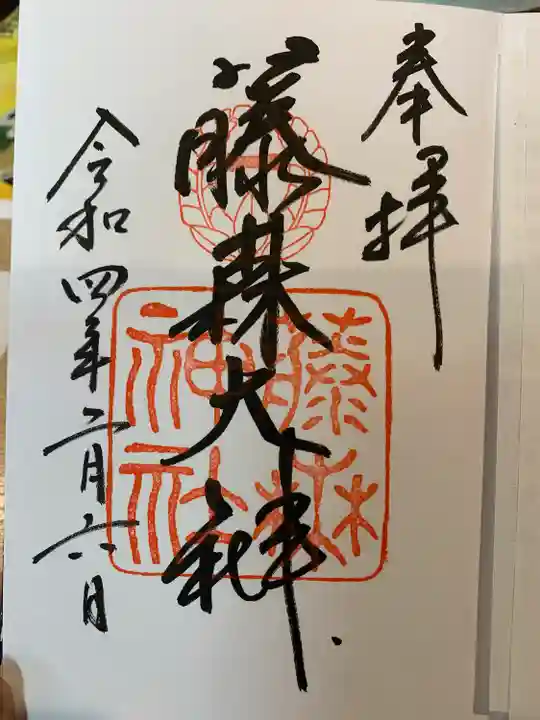 奉拝
藤森大神
藤森神社
令和四年二月六日